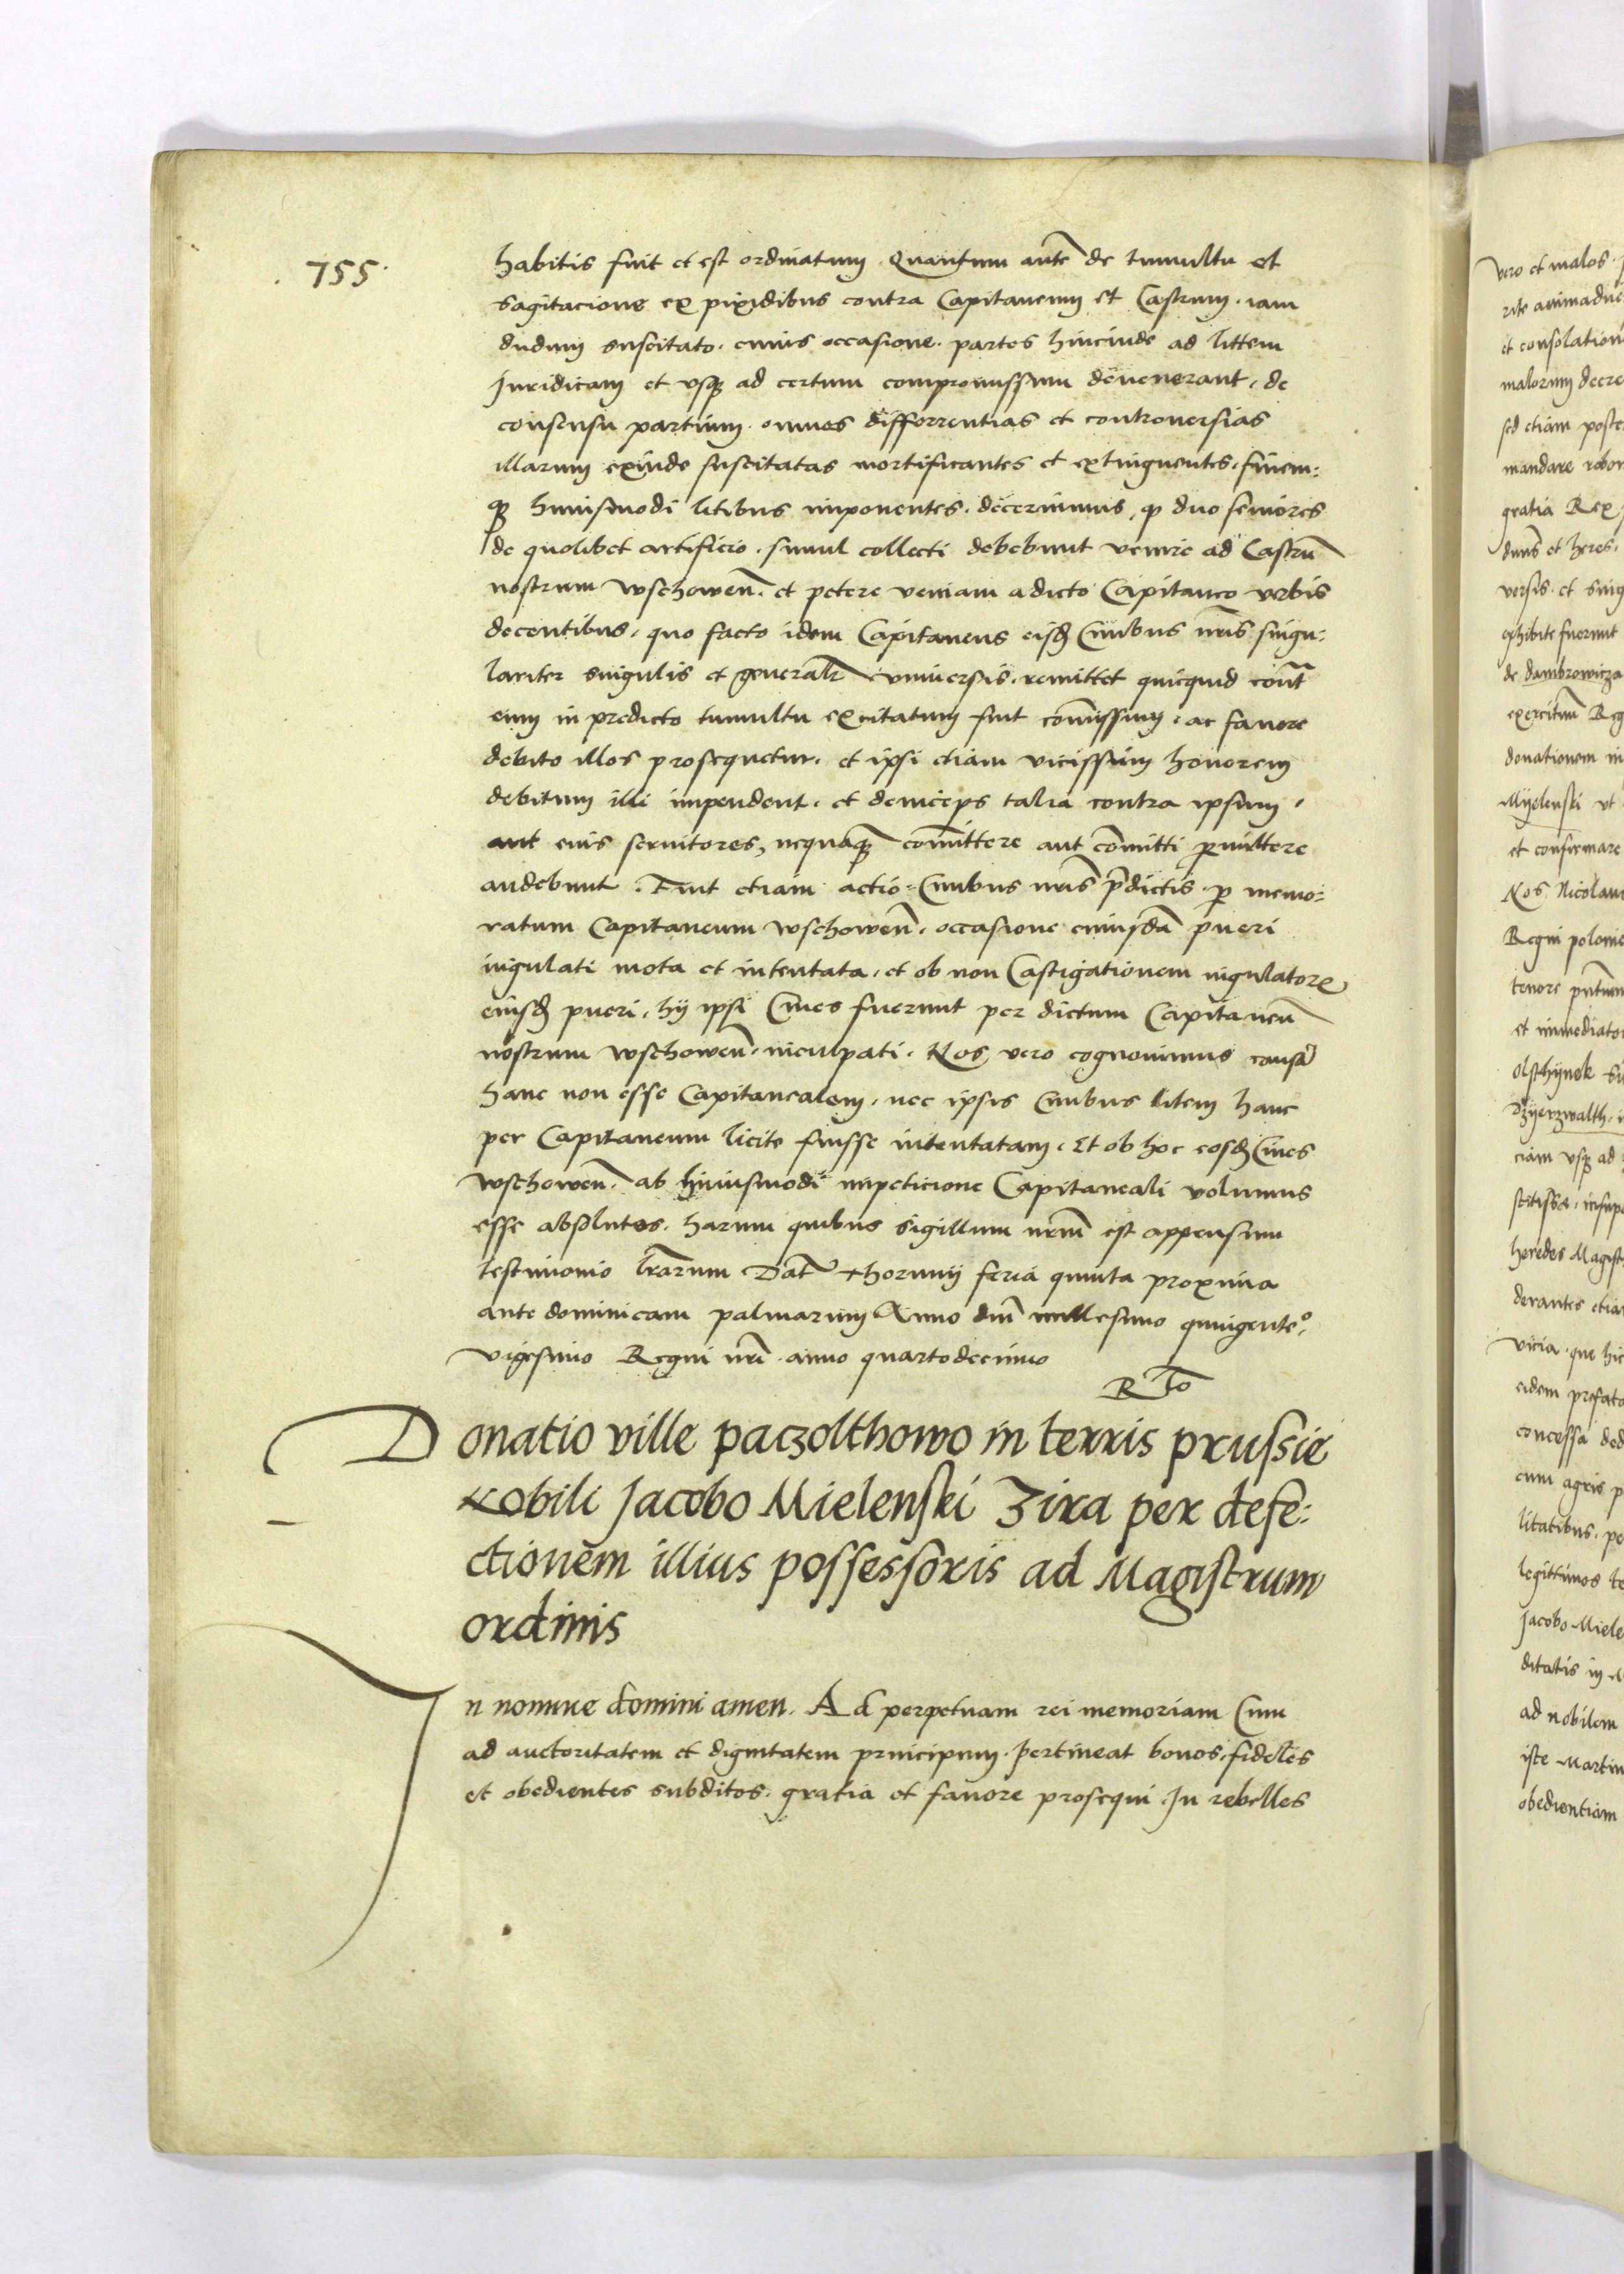 755.
habitis fuit et est ordinatum Quantum autē de tumultu et
sagitacione ex pixidibus contra Capitaneum et Castrum. iam
dudum suscitato. cuius occasione. partes hincinde ad littem
Juridicam et vsqȝ ad certum compromissum devenerant. de
consensu partium. omnes differrentias et controuersias
illarum exinde suscitatas mortificantes et extinguentes. finem:
qȝ huiusmodi litibus imponentes. decernimus. qp duo seniores
de quolibet artificio. simul collecti debebunt venire ad Castrū
nostrum wschoweñ. et petere veniam a dicto Capitaneo verbis
decentibus. quo facto idem Capitaneus eisđ Ciuibus nr̃is singu:
lariter singulis et generalr̃ vniuersis. remittet quicquid cont̃
eum in predicto tumultu excitatum fuit com̄issum. ac fauore
debito illos prosequetur. et ipsi etiam vicissim honorem
debitum illi impendent. et deniceps talia contra ipsum.
aut eius seruitores, nequaqȝ com̄ittere aut com̄itti p̱mittere
audebunt. Fuit etiam actio Ciuibus nr̃is p̄dictis. p̱ memo:
ratum Capitaneum wschoweñ. occasione cuiusdā pueri
iugulati mota et intentata. et ob non Castigationem iugulatore
eiusđ pueri. hij ipsi Ciues fuerunt per dictum Capitaneū
nostrum wschoweñ. inculpati. Nos vero cognouimus causā
hanc non esse Capitanealem. nec ipsis Ciuibus litem hanc
per Capitaneum licite fuisse intentatam. Et ob hoc eosđ Ciues
wschoweñ. ab huiusmodi impeticione Capitaneali volumus
esse absolutos. harum quibus sigillum nr̃m est appensum
testimonio lr̃arum Dat̃ thorunij feria quinta proxima
ante dominicam palmarum Anno dñi millesimo quingente°.
vigesimo Regni nr̃i. anno quartodecimo
R To
Donatio ville paczolthowo in terris prussie
Nobili Jacobo Mielenski Zira per defe:
ctionem illius possessoris ad Magistrum
ordinis
In nomine domini amen. Ad perpetuam rei memoriam Cum
ad auctoritatem et dignitatem principum. pertineat bonos. fideles
et obedientes subditos. gratia et fauore prosequi. In rebelles
vero et malos.
rite animadue
et consolation
malorum decre
sed etiam poste
mandare robor
gratia Rex
dnūs et heres.
versis. et sing
exhibite fuerunt
de dambrowicza
exercitum Reg
donationem in
Myelenski vt
et confirmare
Nos Nicolaus
Regni polonie
tenore pn̄tium
et immediator
olsthijnek
Dzyerzwalth.
ciam vsqȝ ad
stitisse. insup
heredes Magist
derantes etia
vicia. que hic
eidem prefato
concessa ded
cum agris p
litatibus. pe
legittimos
Jacobo Miele
ditatis in
ad nobilem
iste Martin
obedientiam